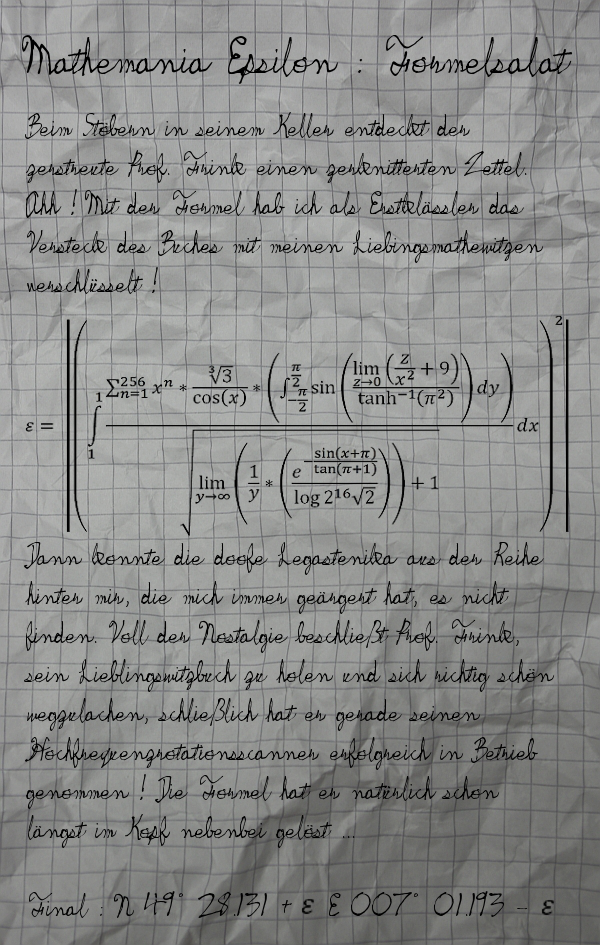 Mathemania Epsilon : Formelsalat
Beim Stöbern in seinem Keller entdeckt der
zerstreute Prof. Frink einen zerknitterten Zettel.
Ahh ! Mit der Formel hab ich als Erstklässler das
Versteck des Buches mit meinen Liebingsmathewitzen
verschlüsselt !
ε = ‖( ∫₁¹ (∑ₙ₌₁²⁵⁶ xⁿ * ∛3/cos(x) * (∫_{-π/2}^{π/2} sin(lim_{z→0} (z/x² + 9) / tanh⁻¹(π²)) dy)) / √(lim_{y→∞} (1/y * (e^{-sin(x+π)/tan(π+1)} / log 2¹⁶√2)) + 1) dx )²‖
Dann konnte die doofe Legastenika aus der Reihe
hinter mir, die mich immer geärgert hat, es nicht
finden. Voll der Nostalgie beschließt Prof. Frink,
sein Lieblingswitzbuch zu holen und sich richtig schön
wegzulachen, schließlich hat er gerade seinen
Hochfrequenzrotationsscanner erfolgreich in Betrieb
genommen ! Die Formel hat er natürlich schon
längst im Kopf nebenbei gelöst ...
Final : N 49° 28.131 + ε E 007° 01.193 - ε